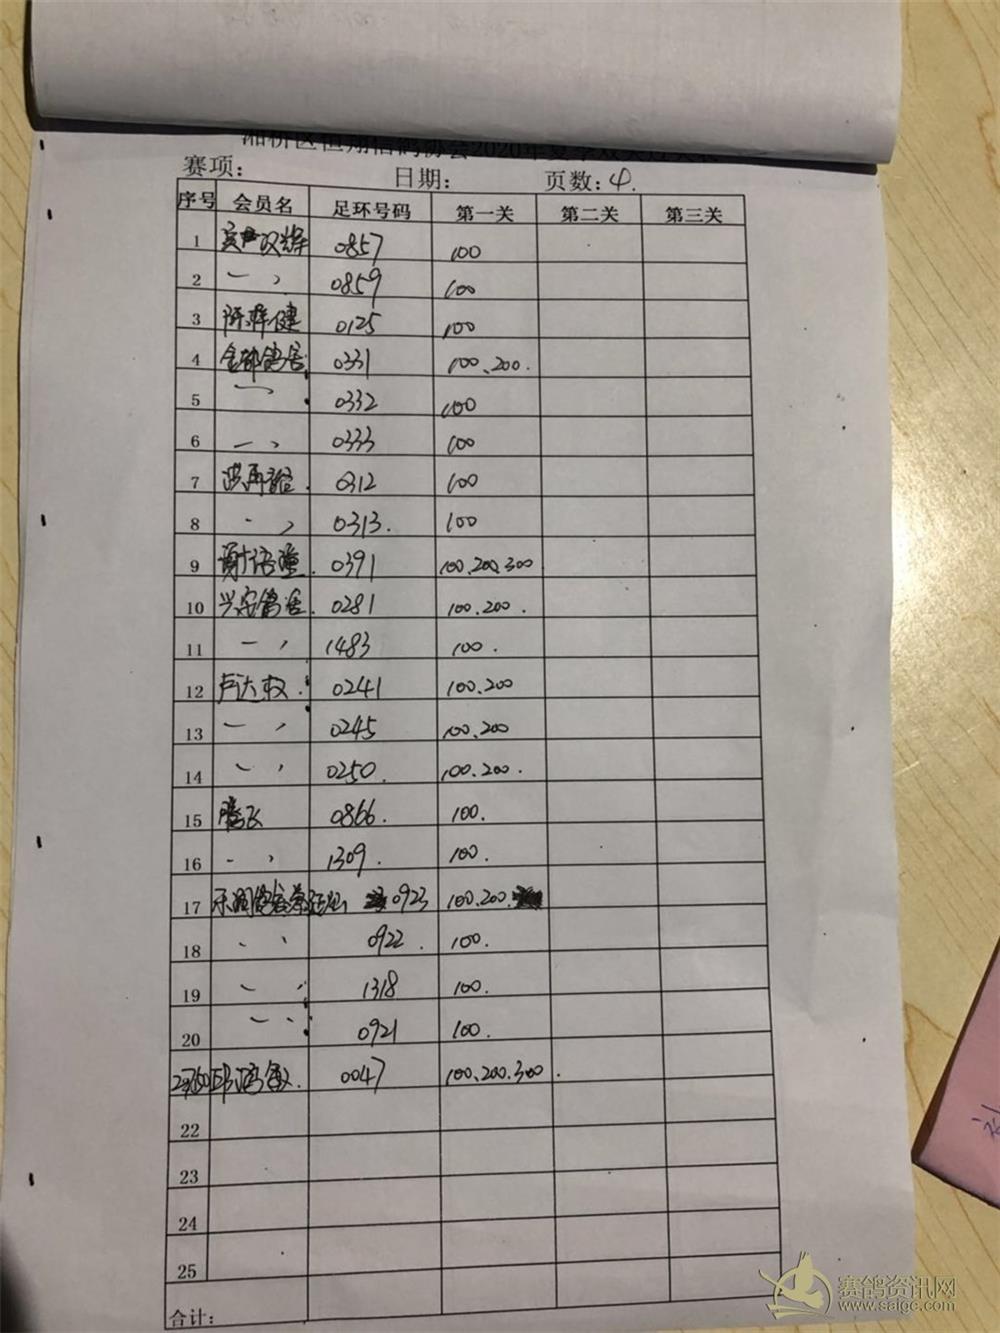 赛项: 日期: 页数: 4.
序号 会员名 足环号码 第一关 第二关 第三关
1 双辉 0857 100
2 一 , 0859 100
3 陈梓健 0125 100
4 鸽舍 0331 100、200.
5 一 0332 100
6 一 、 0333 100
7 洪再 . 0312 100
8 - , 0313. 100
9 谢 . 0391 100.200.300
10 兴安鸽舍. 0281 100.200.
11 一 , 1483 100.
12 卢达权. 0241 100.200
13 一 , 0245 100.200
14 、 , 0250. 100.200.
15 腾飞 0866. 100.
16 - , 1309. 100.
17 0923 100.200.
18 、 、 0922. 100.
19 、 , 1318 100.
20 一 、 0921 100.
0047 100.200.300.
22
23
24
25
合计:
赛鸽资讯网
www.saigc.com